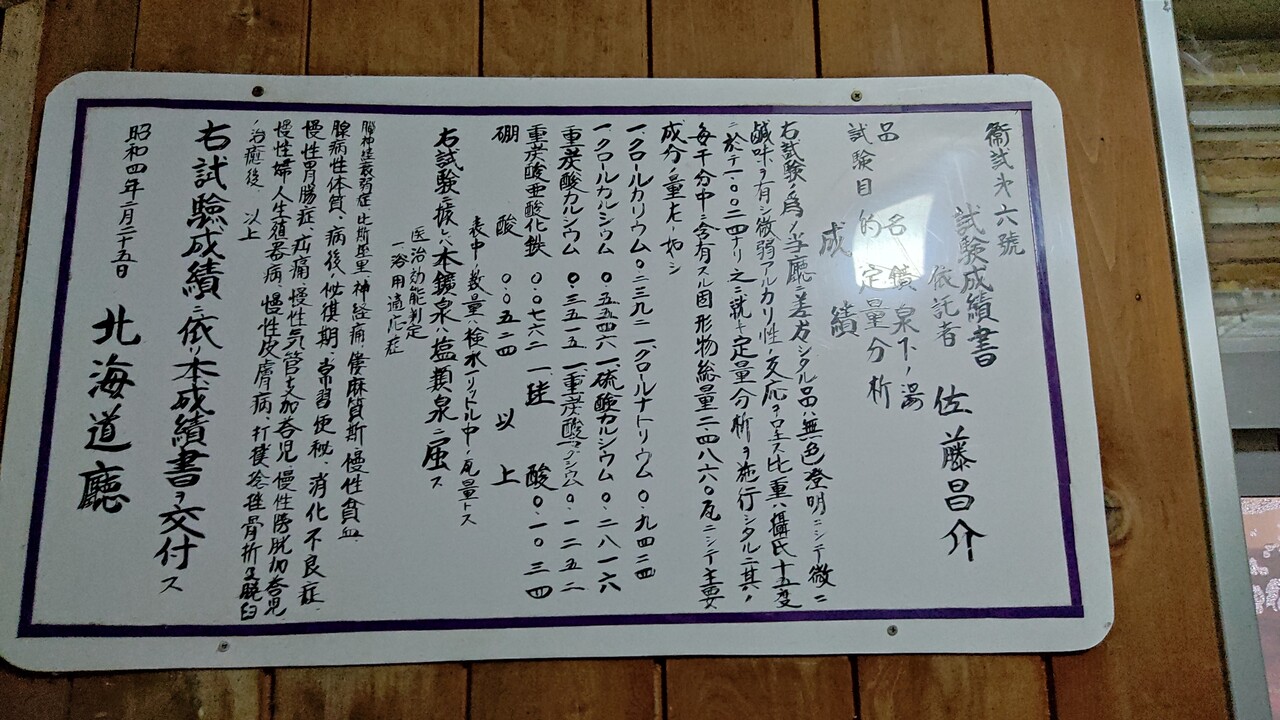 衞試才六號
試験成績書
依託者 佐藤昌介
品名 鑛泉下ノ湯
試験目的 定量分析
成績
右試験ノ爲メ当廳ニ差出シタル品ハ無色澄明ニシテ微ニ
鹹味ヲ有シ微弱アルカリ性ノ反応ヲ呈ス比重ハ攝氏十五度
ニ於テ一.〇〇二四ナリ之ニ就キ定量分析ヲ施行シタルニ其ノ
每千分中ニ含有スル固形物総量二.四八六〇瓦ニシテ主要
成分ノ量左ノ如シ
一.クロールカリウム 〇.二三九二 一.クロールナトリウム 〇.九四二四
一.クロールカルシュウム 〇.五五四六 一.硫酸カルシウム 〇.二八一六
重炭酸カルシウム 〇.三五一五 一.重炭酸マグシウム 〇.一二五二
重炭酸亜酸化鉄 〇.〇七六二 一硅酸 〇.一〇三四
硼酸 〇.〇五二四 以上
表中ノ数量ハ検水一リットル中ノ瓦量トス
右試験ニ據レバ本鑛泉ハ塩類泉ニ属ス
医治効能判定
一浴用適応症
腦神経衰弱症 比斯垤里 神経痛 僂麻質斯 慢性貧血
腺病性体質、病後ノ恢復期、常習便秘、消化不良症
慢性胃腸症、疝痛、慢性気管支加荅児 慢性膀胱加荅児
慢性婦人生殖器病、慢性皮膚病、打撲捻挫骨折及脱臼
ノ治癒後 以上
右試驗成績ニ依リ本成績書ヲ交付ス
昭和四年二月二十五日 北海道廳